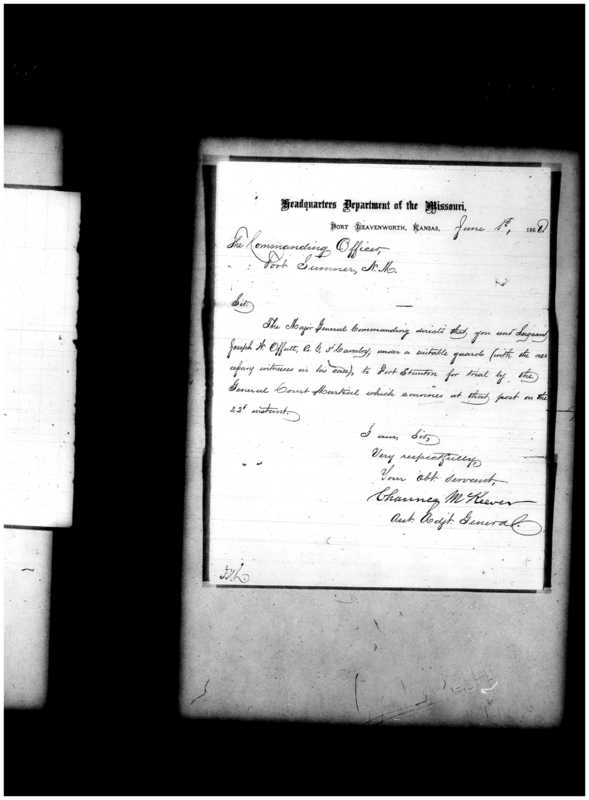 Headquarters Department of the Missouri,
Fort Leavenworth, Kansas, June 1st, 186
The Commanding Officer,
Fort Sumner, N.M.
Sir,
The Major General Commanding directs that, you send Sergeant
Joseph H. Offutt, Cavalry, under a suitable guard, (with the nec
essary witnesses in his case), to Fort Stanton for trial by the
General Court Martial which convenes at that post on the
22d instant.
I am, Sir,
Very respectfully,
Your obt servant,
Chauncey McKeever
Asst Adjt General.